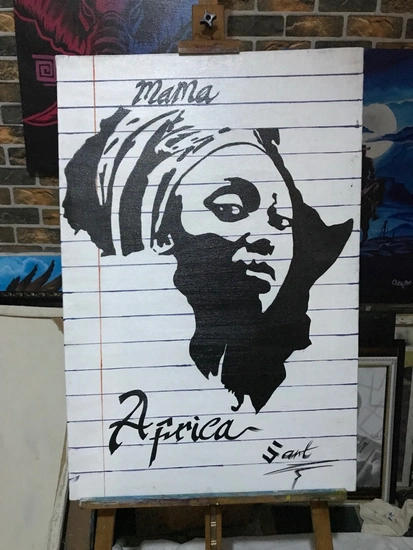 mama
Africa
S art